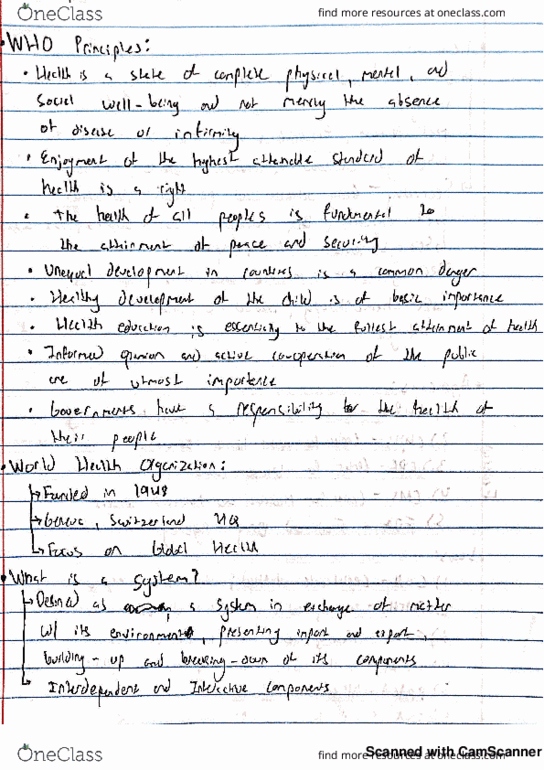 OneClass
find more resources at oneclass.com
• WHO Principles:
• Health is a state of complete physical, mental, and
social well-being and not merely the absence
of disease or infirmity
• Enjoyment of the highest attainable standard of
health is a right
• the health of all peoples is fundamental to
the attainment of peace and security
• Unequal development in countries is a common danger
• Healthy development of the child is of basic importance
• Health education is essenting to the fullest attainment of health
• Informed opinion and active co-operation of the public
are of utmost importance
• Governments have a responsibility for the health of
their people
• World Health Organization:
↳ Funded in 1948
↳ Geneva, Switzerland HQ
↳ Focus on Global Health
• What is a System?
↳ Defined as a system in exchange of matter
w/ its environment, presenting import and export,
building-up and breaking-down of its components
↳ Interdependent and Interactive components
OneClass
find more resources at oneclass.com
Scanned with CamScanner